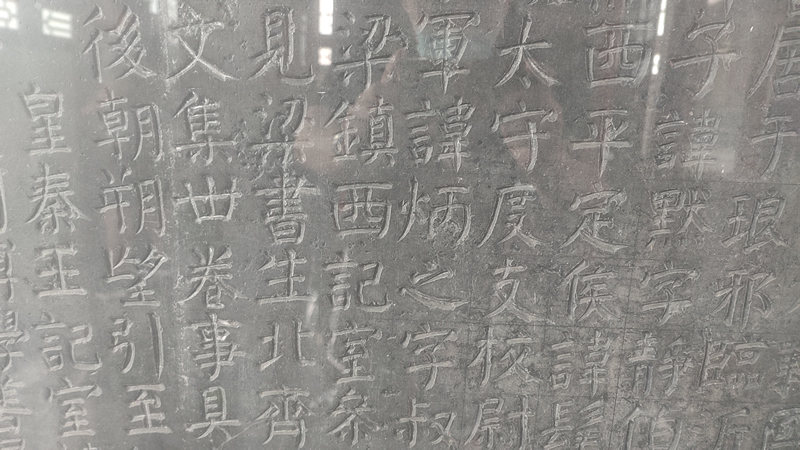 居于琅邪臨
子諱默字靜伯
西平定侯諱髦
太守度支校尉
軍諱炳之字叔
梁鎮西記室參
見梁書生北齊
文集丗卷事具
後朝朔望引至
皇秦王記室
學善